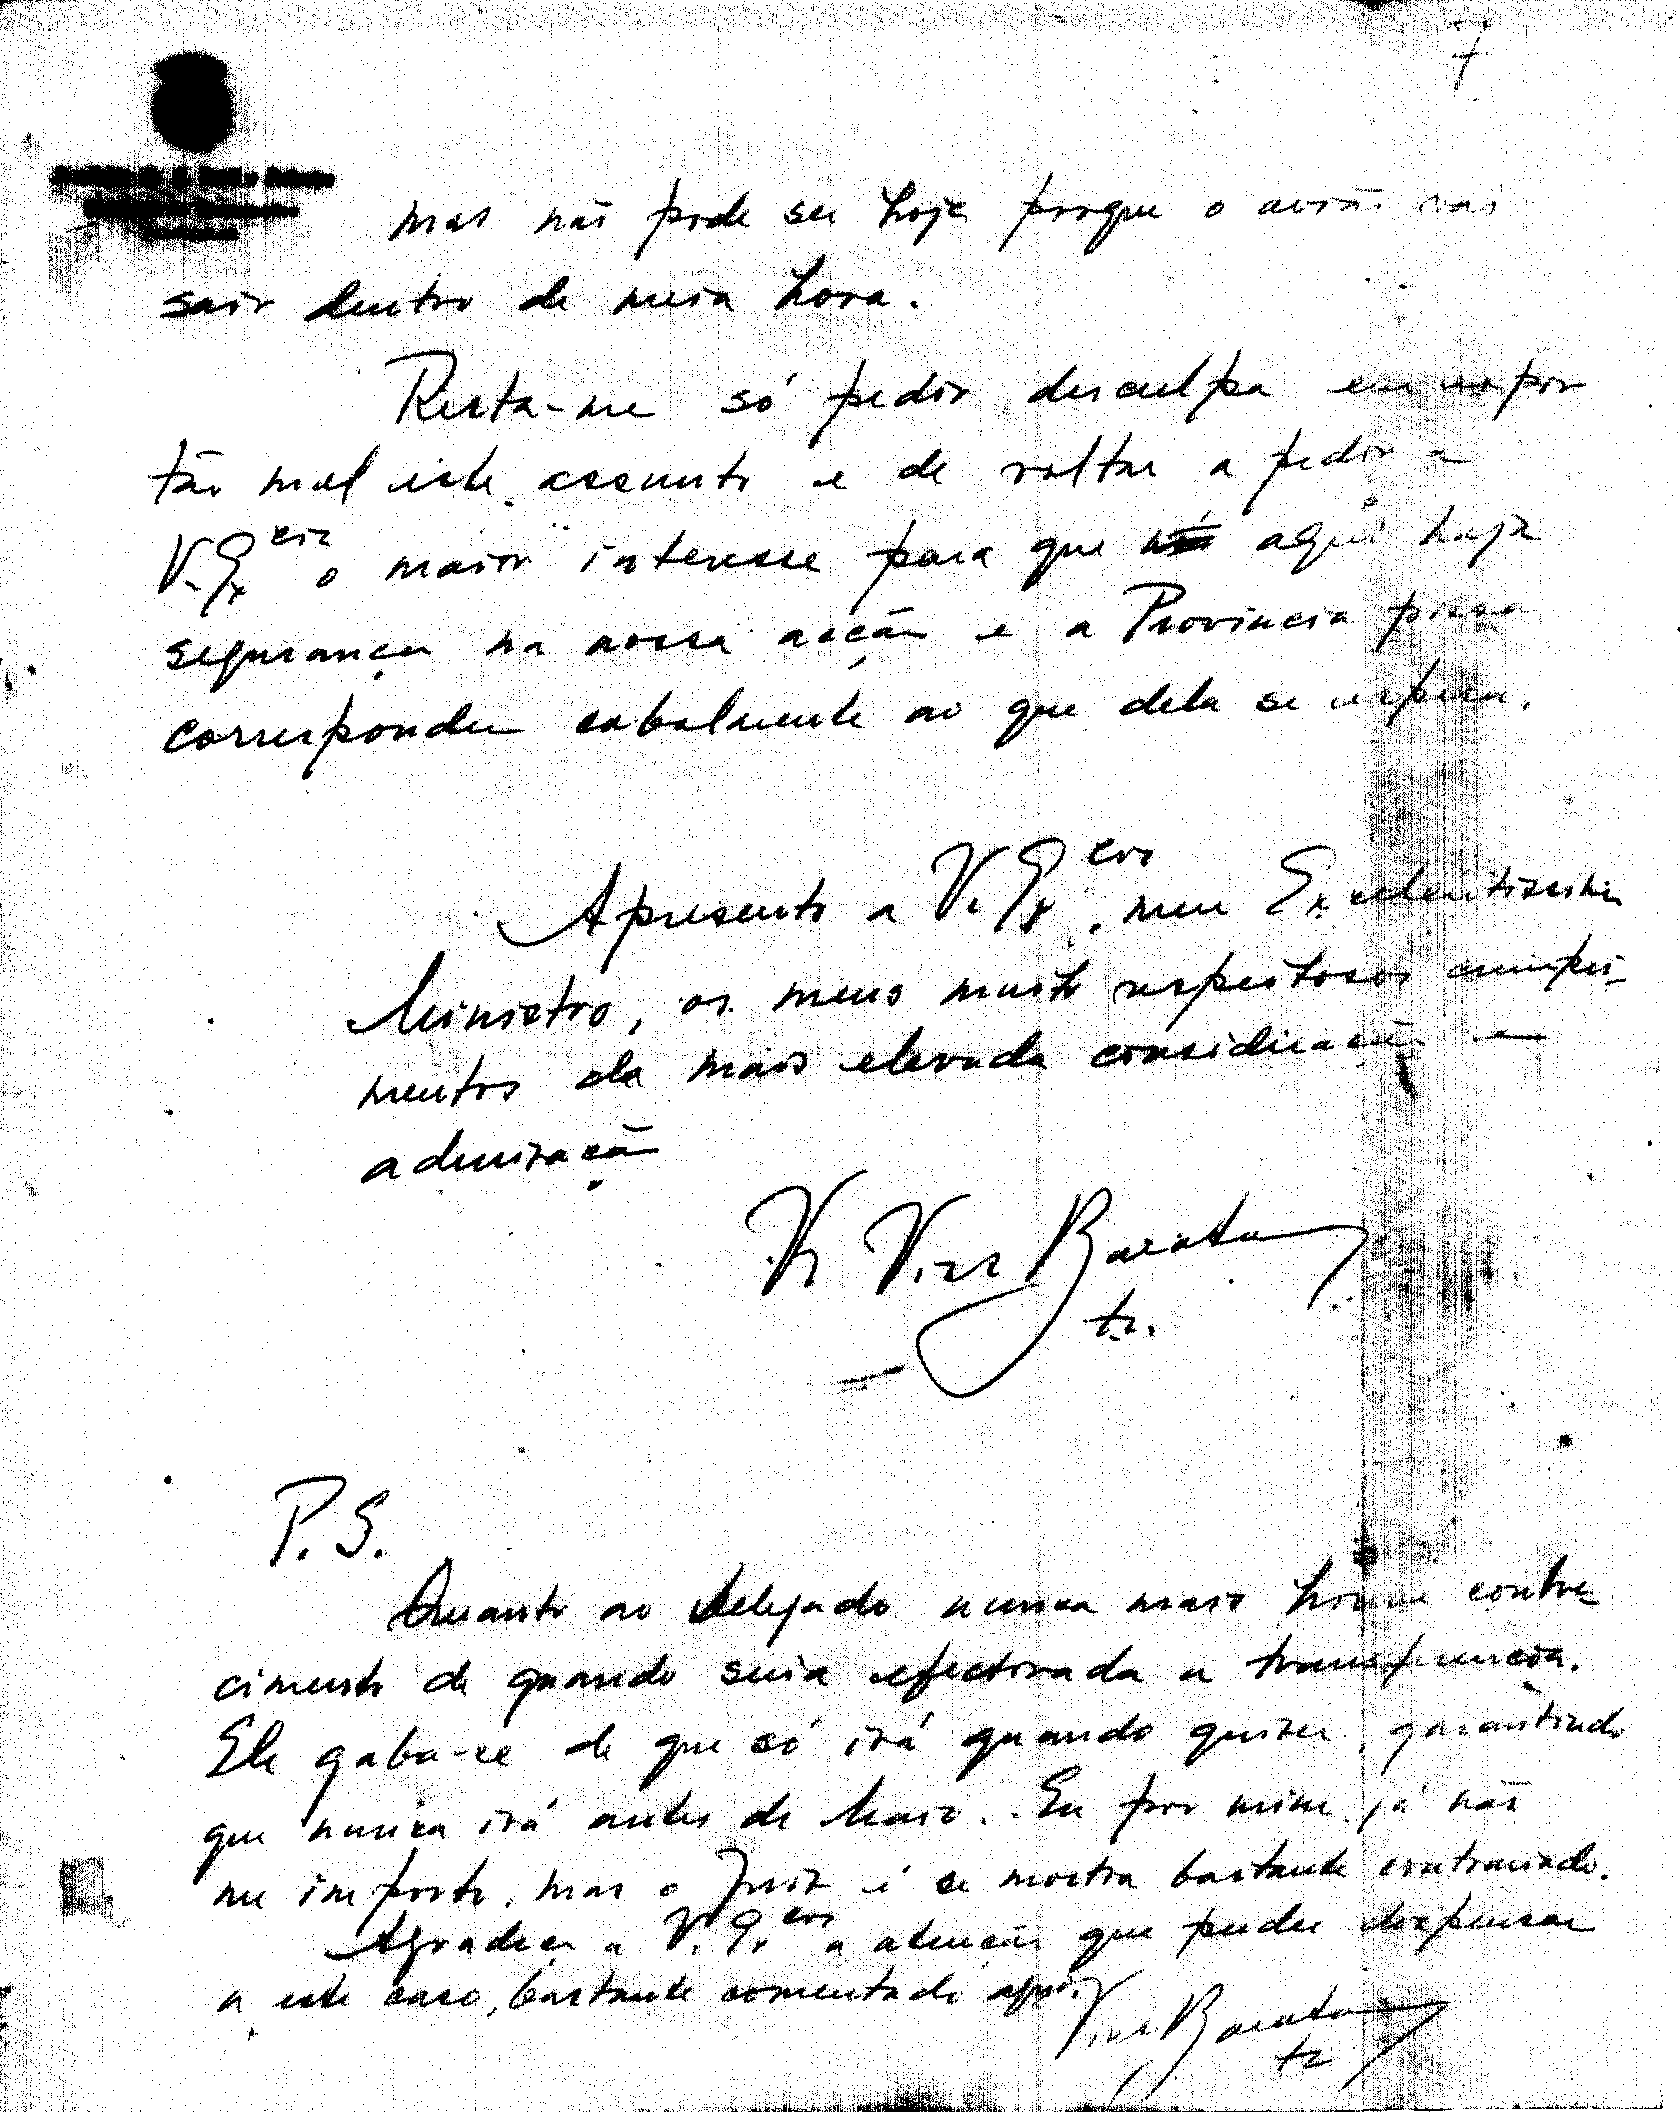 7
mas não pode ser hoje porque o avião vai
sair dentro de meia hora.
Resta-me só pedir desculpa em expor
tão mal este assunto e de voltar a pedir a
V. Ex.cia o maior interesse para que aqui haja
segurança na nossa acção e a Provincia possa
corresponder cabalmente ao que dela se espera.
Apresento a V. Ex.cia, meu Excelentissimo
Ministro, os meus muito respeitosos cumpri-
mentos da mais elevada consideração e
admiração
Vaz Barata
P.S.
Quanto ao Delegado nunca mais houve conhe
cimento de quando seria efectivada a transferencia.
Ele gaba-se de que só irá quando quiser garantindo
que nunca irá antes de Maio. Eu por mim já não
me importo, mas o Juiz é se mostra bastante contrariado.
Agradeço a V. Ex.cia a atenção que puder dispensar
a este caso, bastante comentado aqui.
Barata